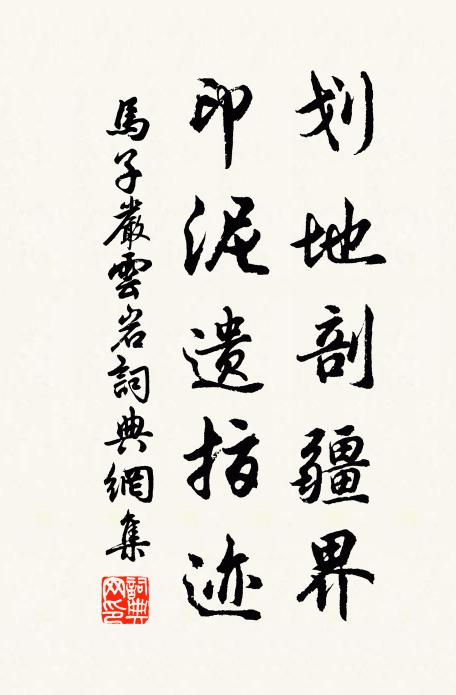 划地剖疆界
印泥遗指迹
馬子嚴雲岩詞典網集
詞典網印